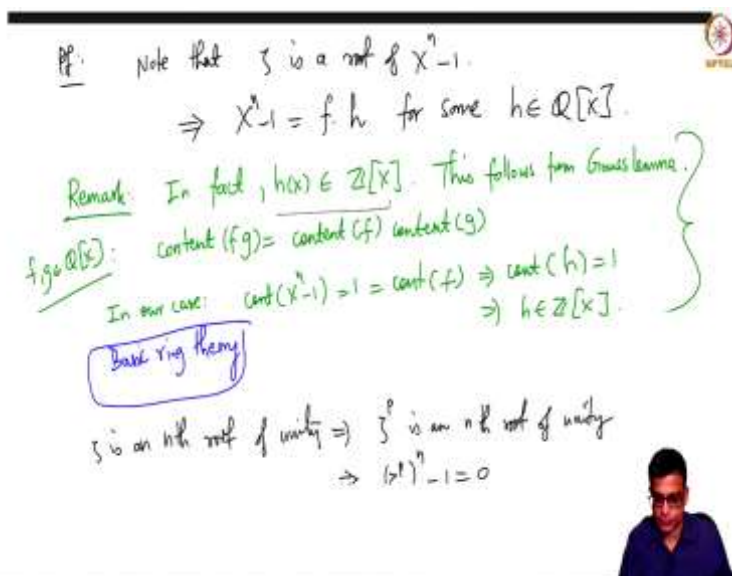 Pf: Note that ζ is a root of Xⁿ-1.
⇒ Xⁿ-1 = f·h for some h ∈ ℚ[X].
Remark: In fact, h(x) ∈ ℤ[X]. This follows from Gauss lemma.
f,g ∈ ℚ[X]: content(fg) = content(f) content(g)
In our case: cont(Xⁿ-1) = 1 = cont(f) ⇒ cont(h) = 1
⇒ h ∈ ℤ[X].
Basic ring theory
ζ is an nth root of unity ⇒ ζᵖ is an nth root of unity
⇒ (ζᵖ)ⁿ - 1 = 0
NPTEL